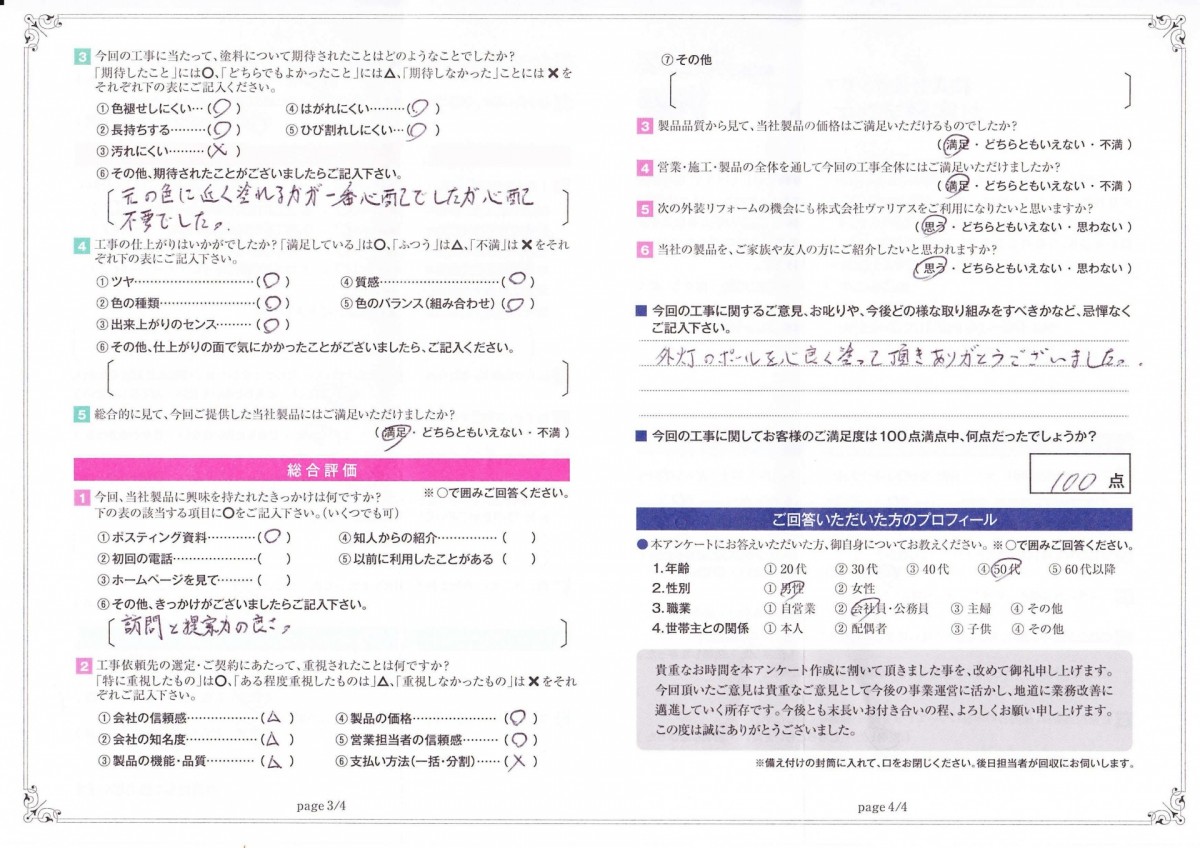 3 今回の工事に当たって、塗料について期待されたことはどのようなことでしたか?
「期待したこと」には○、「どちらでもよかったこと」には△、「期待しなかった」ことには×を
それぞれ下の表にご記入ください。
①色褪せしにくい…(○) ④はがれにくい………(○)
②長持ちする………(○) ⑤ひび割れしにくい…(○)
③汚れにくい………(×)
⑥その他、期待されたことがございましたらご記入下さい。
元の色に近く塗れるかが一番心配でしたが心配
不要でした。
4 工事の仕上がりはいかがでしたか?「満足している」は○、「ふつう」は△、「不満」は×をそれ
ぞれ下の表にご記入下さい。
①ツヤ……………………(○) ④質感……………………(○)
②色の種類………………(○) ⑤色のバランス(組み合わせ)(○)
③出来上がりのセンス………(○)
⑥その他、仕上がりの面で気にかかったことがございましたら、ご記入ください。
5 総合的に見て、今回ご提供した当社製品にはご満足いただけましたか?
(満足・どちらともいえない・不満)
総合評価
1 今回、当社製品に興味を持たれたきっかけは何ですか? ※○で囲みご回答ください。
下の表の該当する項目に○をご記入下さい。(いくつでも可)
①ポスティング資料…………(○) ④知人からの紹介……………( )
②初回の電話………………( ) ⑤以前に利用したことがある( )
③ホームページを見て………( )
⑥その他、きっかけがございましたらご記入下さい。
訪問と提案力の良さ。
2 工事依頼先の選定・ご契約にあたって、重視されたことは何ですか?
「特に重視したもの」は○、「ある程度重視したものは」△、「重視しなかったもの」は×をそれ
ぞれご記入下さい。
①会社の信頼感………………(△) ④製品の価格…………………(○)
②会社の知名度………………(△) ⑤営業担当者の信頼感………(○)
③製品の機能・品質…………(△) ⑥支払い方法(一括・分割)……(×)
page 3/4
⑦その他
3 製品品質から見て、当社製品の価格はご満足いただけるものでしたか?
(満足・どちらともいえない・不満)
4 営業・施工・製品の全体を通して今回の工事全体にはご満足いただけましたか?
(満足・どちらともいえない・不満)
5 次の外装リフォームの機会にも株式会社ヴァリアスをご利用になりたいと思いますか?
(思う・どちらともいえない・思わない)
6 当社の製品を、ご家族や友人の方にご紹介したいと思われますか?
(思う・どちらともいえない・思わない)
■今回の工事に関するご意見、お叱りや、今後どの様な取り組みをすべきかなど、忌憚なく
ご記入下さい。
外灯のポールを心良く塗って頂きありがとうございました。
■今回の工事に関してお客様のご満足度は100点満点中、何点だったでしょうか?
100点
ご回答いただいた方のプロフィール
●本アンケートにお答えいただいた方、御自身についてお教えください。※○で囲みご回答ください。
1.年齢 ①20代 ②30代 ③40代 ④50代 ⑤60代以降
2.性別 ①男性 ②女性
3.職業 ①自営業 ②会社員・公務員 ③主婦 ④その他
4.世帯主との関係 ①本人 ②配偶者 ③子供 ④その他
貴重なお時間を本アンケート作成に割いて頂きました事を、改めて御礼申し上げます。
今回頂いたご意見は貴重なご意見として今後の事業運営に活かし、地道に業務改善に
邁進していく所存です。今後とも末長いお付き合いの程、よろしくお願い申し上げます。
この度は誠にありがとうございました。
※備え付けの封筒に入れて、口をお閉じください。後日担当者が回収にお伺いします。
page 4/4